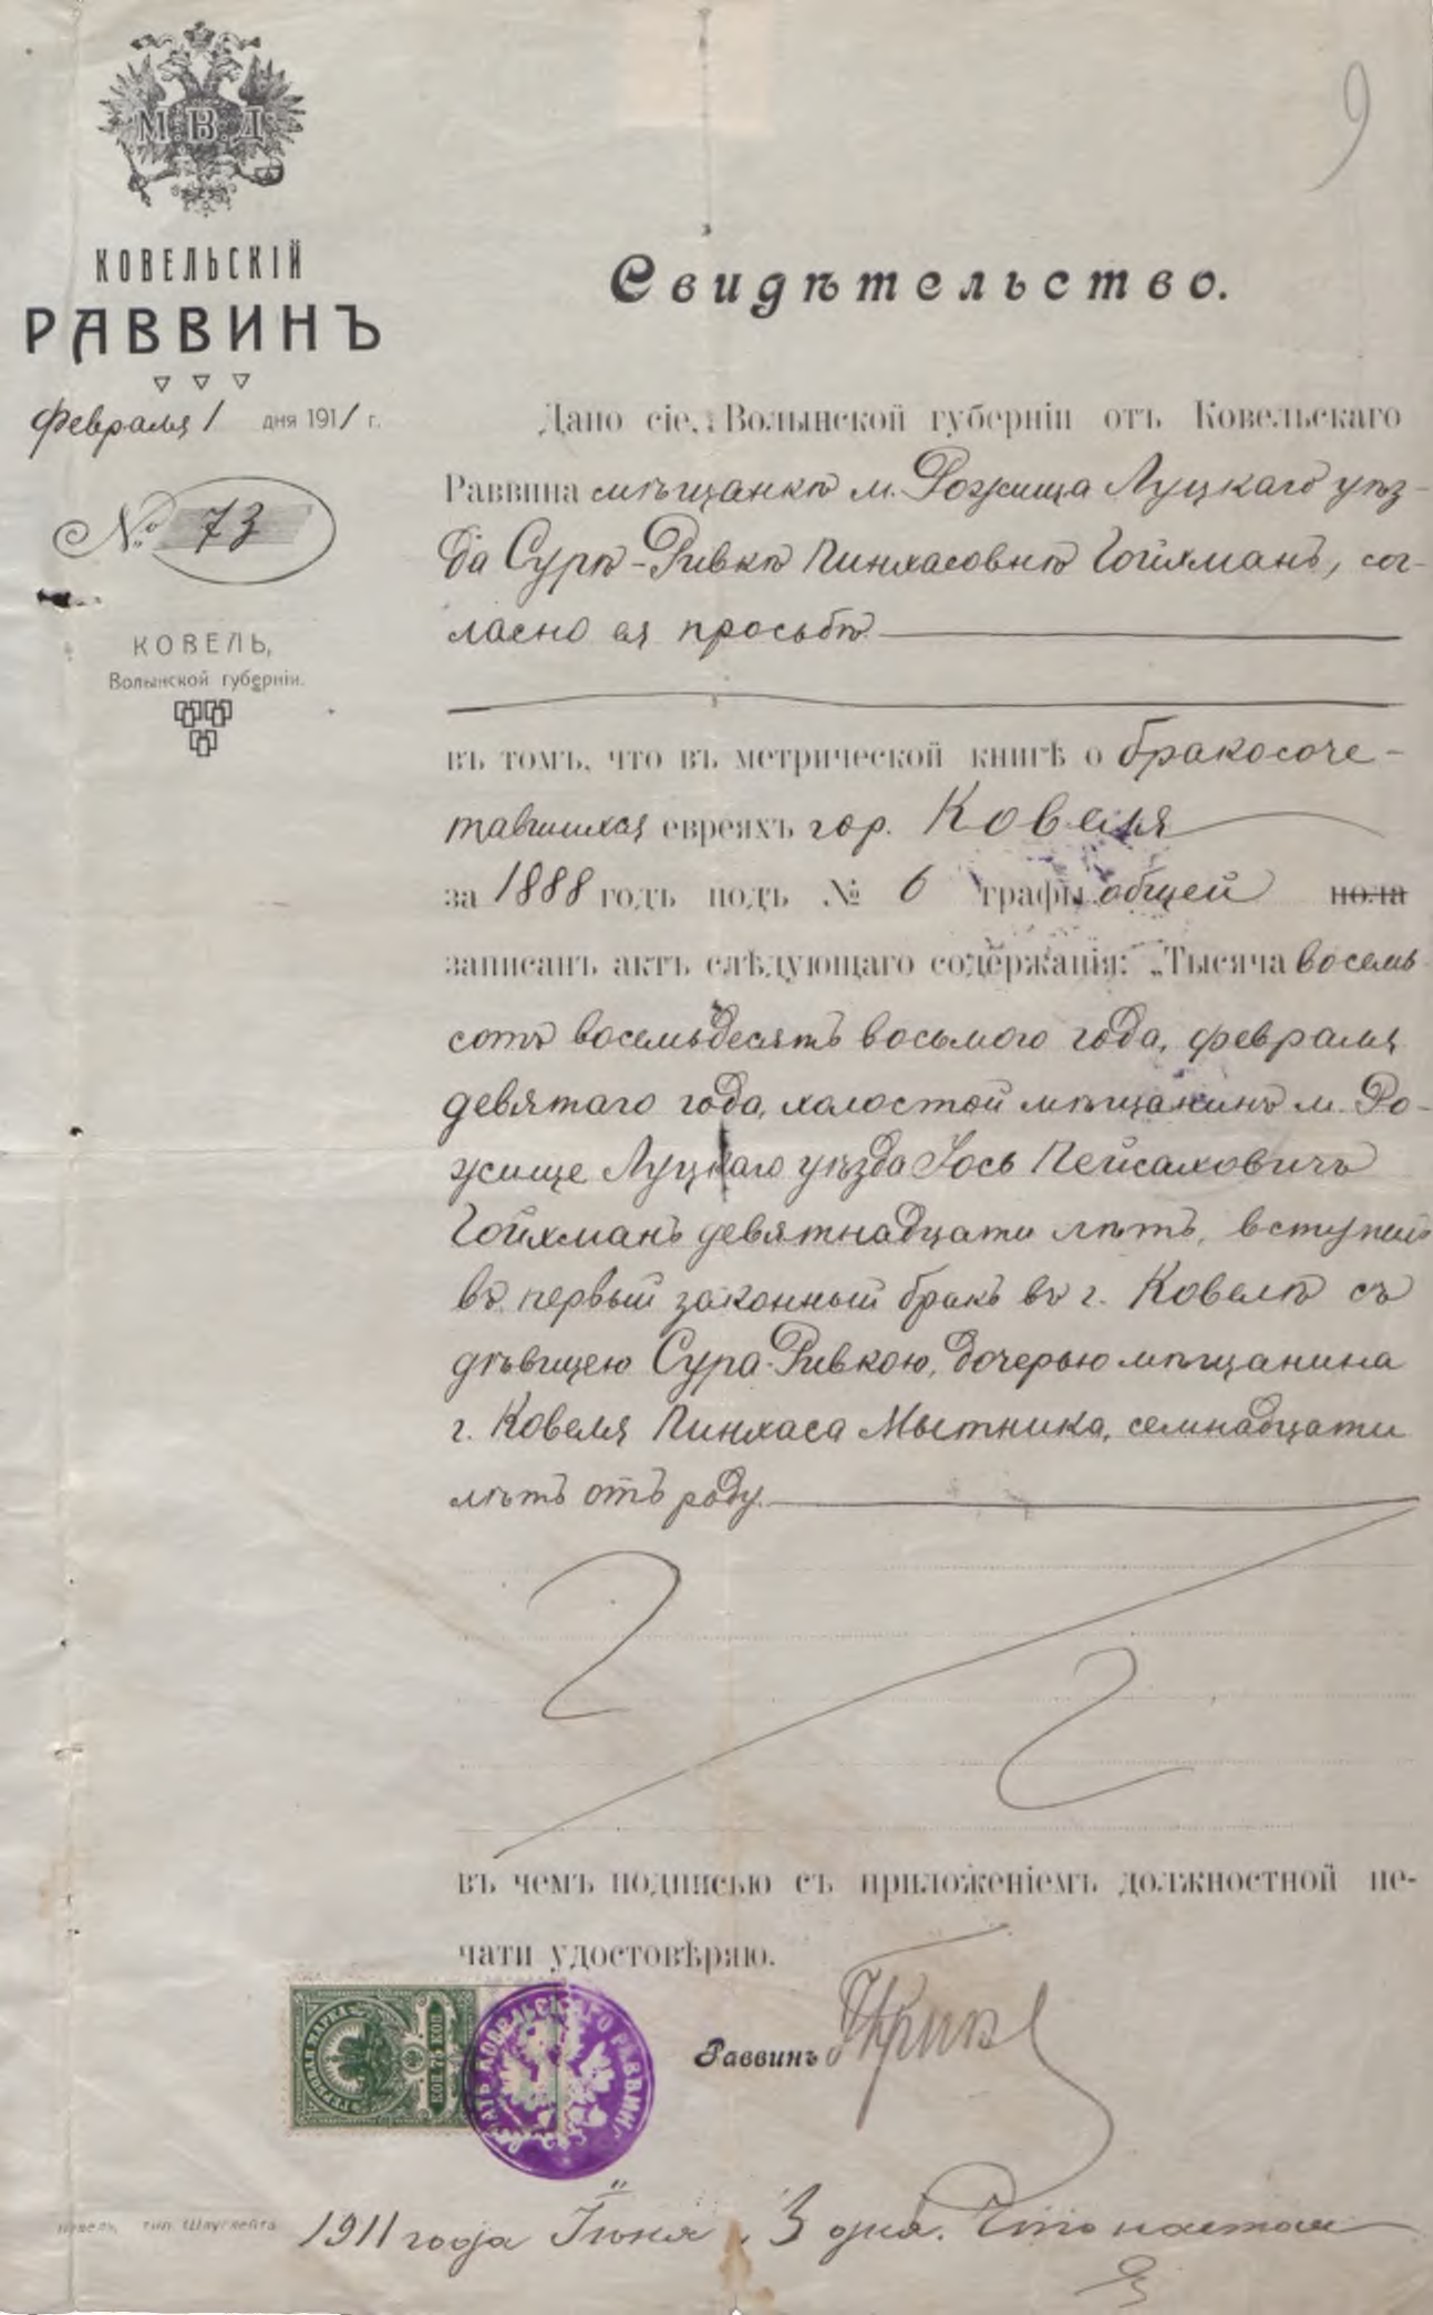 9
М.В.Д.
КОВЕЛЬСКІЙ
РАВВИНЪ
Февраля 1 дня 1911 г.
№ 73
КОВЕЛЬ,
Волынской губерніи.
Свидѣтельство.
Дано сіе, Волынской губерніи отъ Ковельскаго
Раввина мѣщанкѣ м. Рожища Луцкаго уѣз-
да Сурѣ-Ривкѣ Пинхасовнѣ Гойхманъ, сог-
ласно ея просьбѣ
въ томъ, что въ метрической книгѣ о бракосоче-
тавшихся евреяхъ гор. Ковеля
за 1888 годъ подъ № 6 графы общей пола
записанъ актъ слѣдующаго содержанія: „Тысяча восемь
сотъ восемьдесятъ восьмого года, февраля
девятаго года, холостой мѣщанинъ м. Ро-
жище Луцкаго уѣзда Іось Пейсаховичъ
Гойхманъ девятнадцати лѣтъ, вступилъ
въ первый законный бракъ въ г. Ковелѣ съ
дѣвицею Сура-Ривкою, дочерью мѣщанина
г. Ковеля Пинхаса Мытника, семнадцати
лѣтъ отъ роду.
въ чемъ подписью съ приложеніемъ должностной пе-
чати удостовѣряю.
ГЕРБОВАЯ МАРКА
КОП. 75 КОП.
КОВЕЛЬСКАГО РАВВИНА
Раввинъ
Ковель, тип.
1911 года Іюня 3 дня. Что настоя